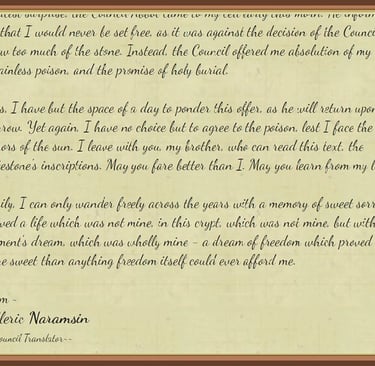 the Council
that I would never be set free, as it was against the decision of the Counci
too much of the stone. Instead, the Council offered me absolution of my
ainless poison, and the promise of holy burial.
s, I have but the space of a day to ponder this offer, as he will return upon
rrow. Yet again, I have no choice but to agree to the poison, lest I face the
ors of the sun. I leave with you, my brother, who can read this text, the
estone's inscriptions. May you fare better than I. May you learn from my l
ily, I can only wander freely across the years with a memory of sweet sorr
ved a life which was not mine, in this crypt, which was not mine, but with
ment's dream, which was wholly mine - a dream of freedom which proved
e sweet than anything freedom itself could ever afford me.
m -
leric Naramsin
ouncil Translator~~